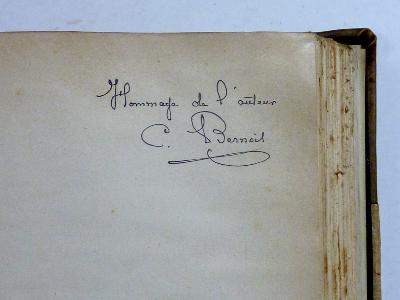 Hommage de l'auteur
C. Bernoit